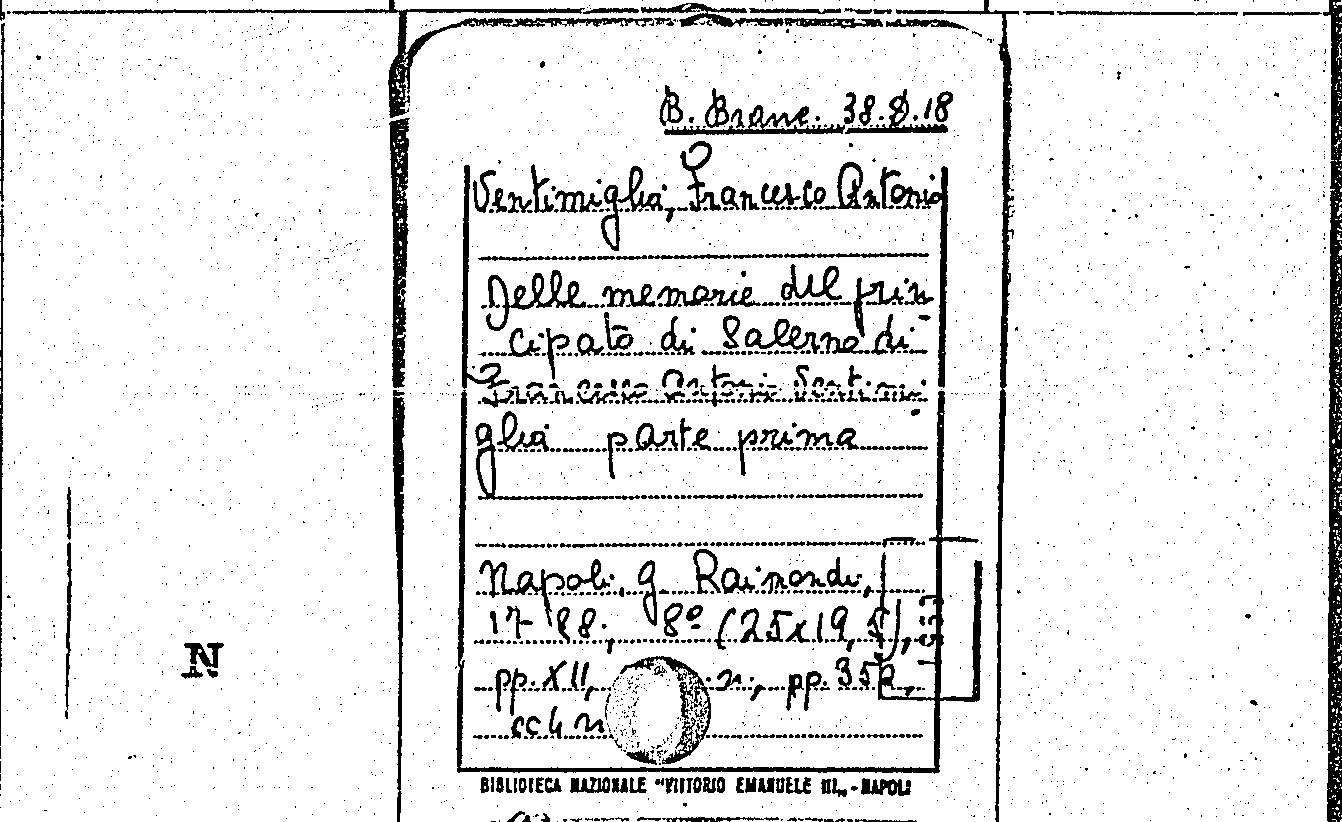 B. Branc. 38.D.18
Ventimiglia, Francesco Antonio
Delle memorie del prin
cipato di Salerno di
Francesco Antonio Ventimi
glia parte prima
Napoli, G. Raimondi,
1788, 8º (25x19,5),
pp. XII, n., pp. 352,
cc 4 n
N
BIBLIOTECA NAZIONALE "VITTORIO EMANUELE III„ - NAPOLI